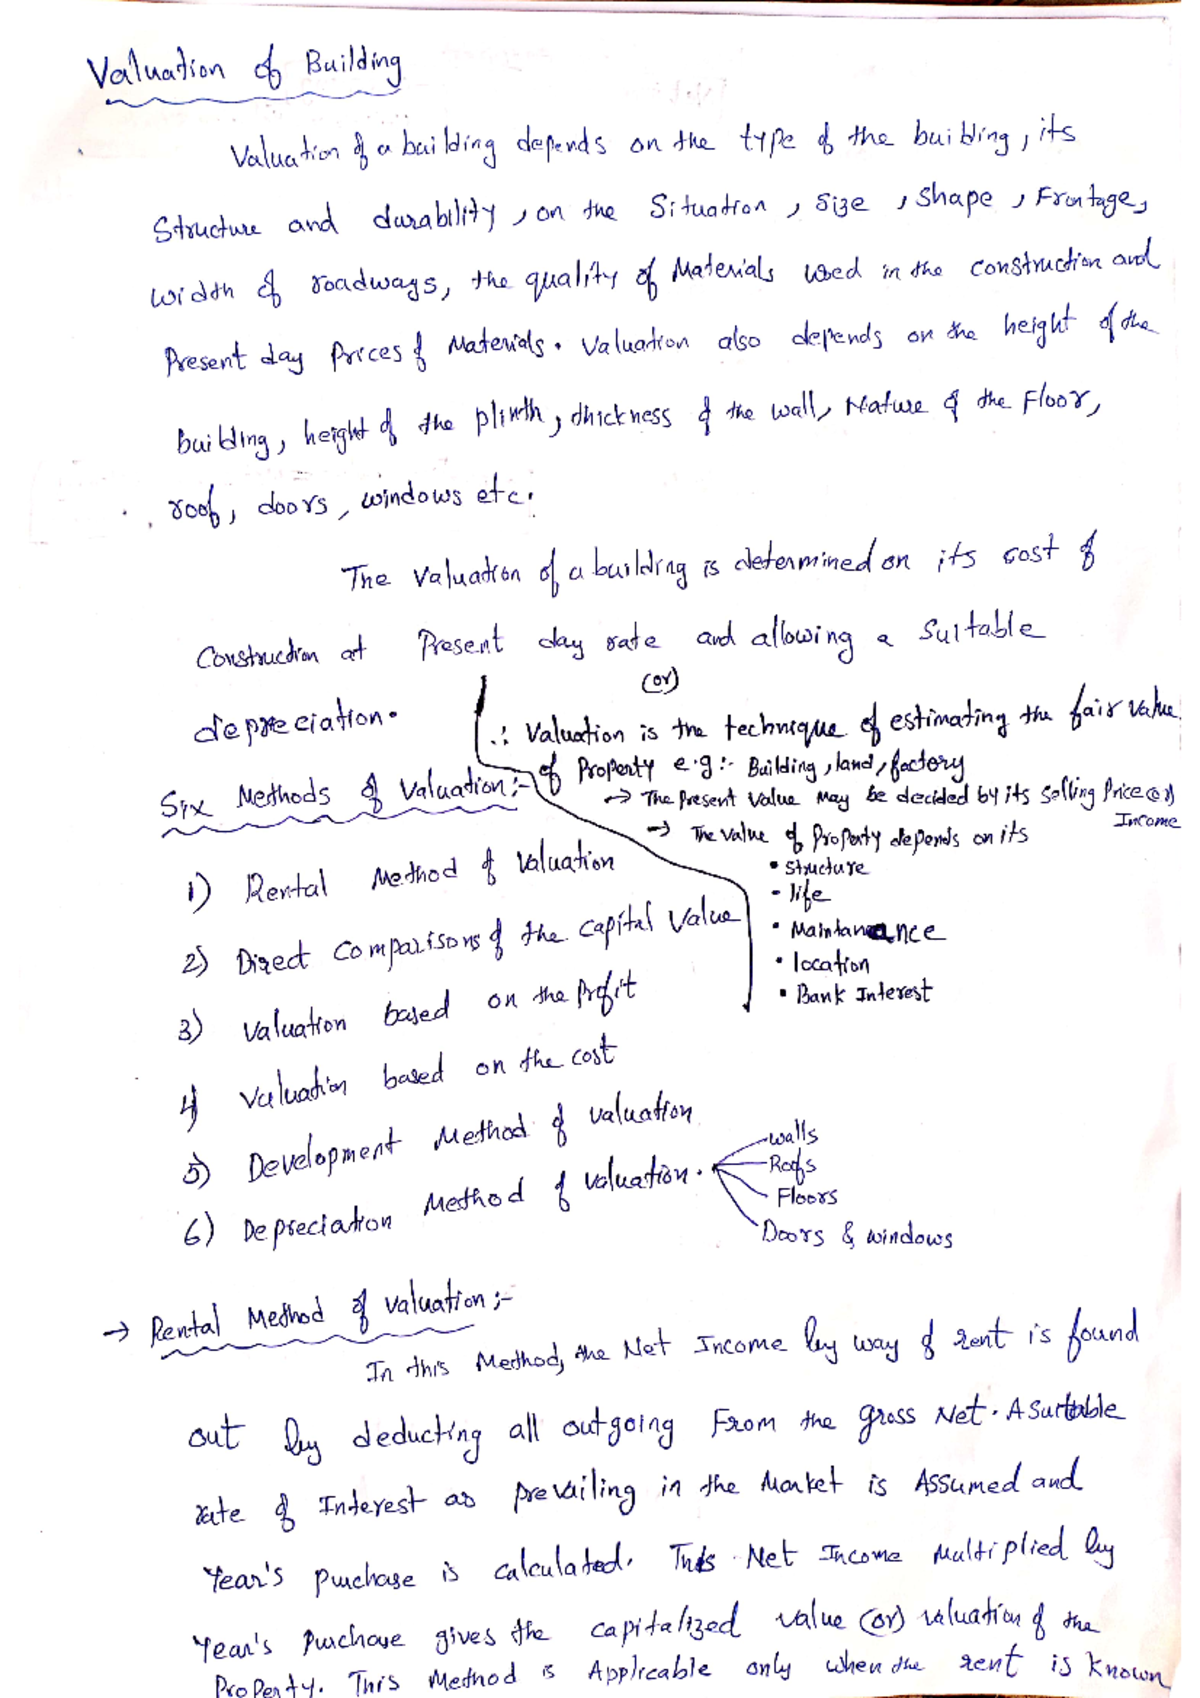 Valuation of Building
Valuation of a building depends on the type of the building, its
Structure and durability, on the Situation, Size, Shape, Frontage,
width of roadways, the quality of Materials used in the construction and
Present day Prices of Materials. Valuation also depends on the height of the
Building, height of the plinth, thickness of the wall, Nature of the Floor,
roof, doors, windows etc.
The Valuation of a building is determined on its cost of
Construction at Present day rate and allowing a Suitable
depreciation.
(or)
∴ Valuation is the technique of estimating the fair value
of Property e.g:- Building, land, factory
→ The Present Value May be decided by its Selling Price (or)
Income
→ The value of Property depends on its
• Structure
- life
• Maintanance
• location
• Bank Interest
Six Methods of Valuation:-
1) Rental Method of Valuation
2) Direct Comparisons of the Capital Value
3) Valuation based on the Profit
4) Valuation based on the cost
5) Development Method of valuation
6) Depreciation Method of Valuation.
walls
Roofs
Floors
Doors & windows
→ Rental Method of valuation:-
In this Method, the Net Income by way of rent is found
out by deducting all outgoing From the gross Net. A Suitable
rate of Interest as prevailing in the Market is Assumed and
Year's purchase is calculated. This Net Income Multiplied by
Year's Purchase gives the capitalized value (or) valuation of the
Property. This Method is Applicable only when the rent is known